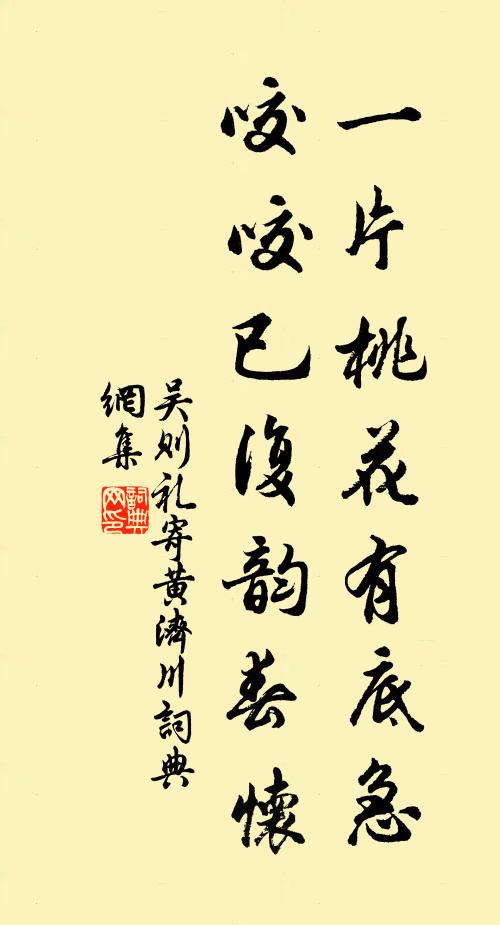 一片桃花有底急
咬咬已復韵春懷
吴则礼寄黄濟川詞典
網集
詞典
网印